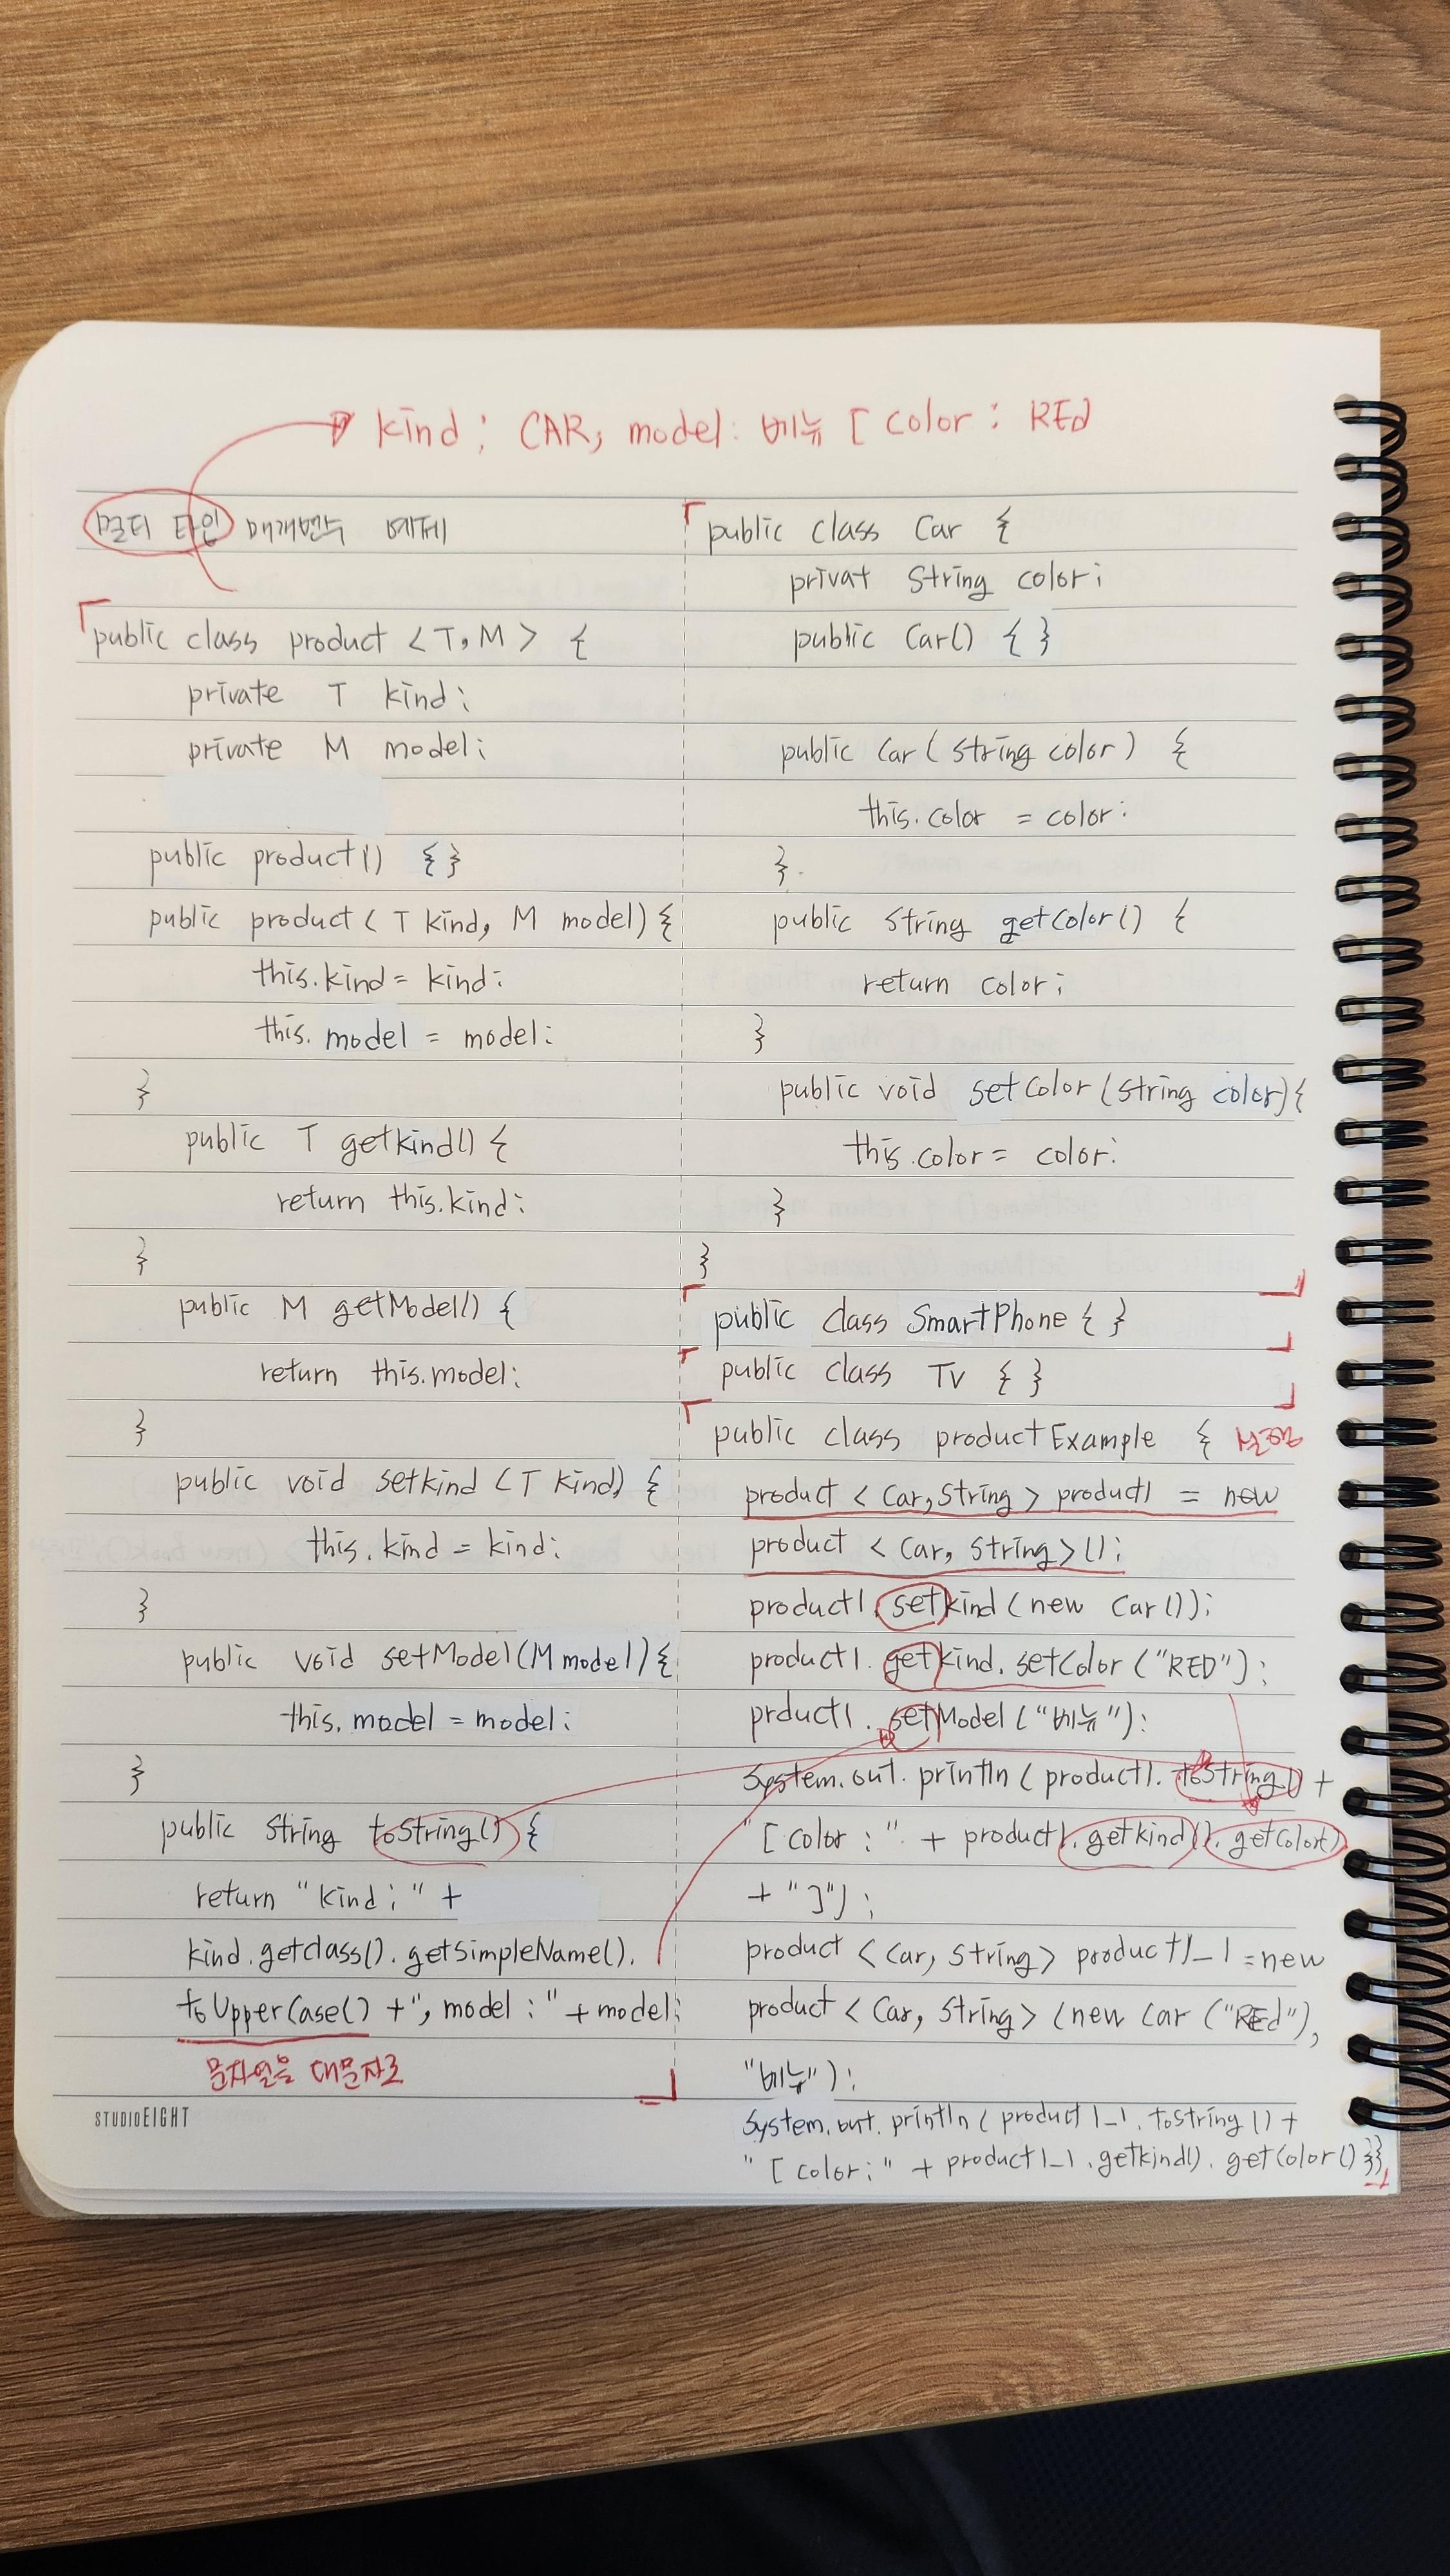 kind : CAR, model : 베뉴 [ color : REd
멀티 타인 매개변수 예제
public class product < T, M > {
private T kind;
private M model;
public product() { }
public product ( T kind, M model) {
this.kind = kind;
this. model = model;
}
public T getkind() {
return this.kind;
}
public M getModel() {
return this.model;
}
public void setkind (T kind) {
this.kind = kind;
}
public void setModel(M model) {
this. model = model;
}
public String toString() {
return "kind : " +
kind.getclass().getSimpleName().
toUpperCase() + ", model : " + model;
문자열을 대문자로
STUDIOEIGHT
public class Car {
privat String color;
public Car() { }
public Car ( String color) {
this.color = color;
}
public String getColor() {
return color;
}
public void setColor (String color) {
this.color = color;
}
}
public class SmartPhone { }
public class Tv { }
public class productExample {
product < Car, String > product1 = new
product < Car, String > ();
product1.setkind (new Car());
product1. getkind. setColor ("RED");
prduct1. setModel ("베뉴");
System.out. println ( product1. toString() +
"[ color : " + product1.getkind(). getColor()
+ "]");
product < Car, String > product1_1 = new
product < Car, String > (new Car ("REd"),
"베뉴");
System.out. println ( product1_1. toString () +
" [ color : " + product1_1.getkind(). getColor() }}